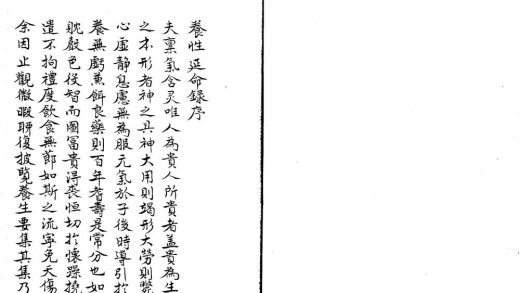 養性延命錄序
夫稟氣含灵唯人為貴人所貴者盖貴為生
之本形者神之具神大用則竭形大勞則斃
心虛静息慮無為服元氣於子後時導引於
養無虧蒹餌良藥則百年耆壽是常分也如
躭聲色役智而圖富貴得喪恒切於懷躁撓
遣不拘禮度飲食無節如斯之流寧免夭傷
余因止觀微暇聊復披覽養生要集其集乃